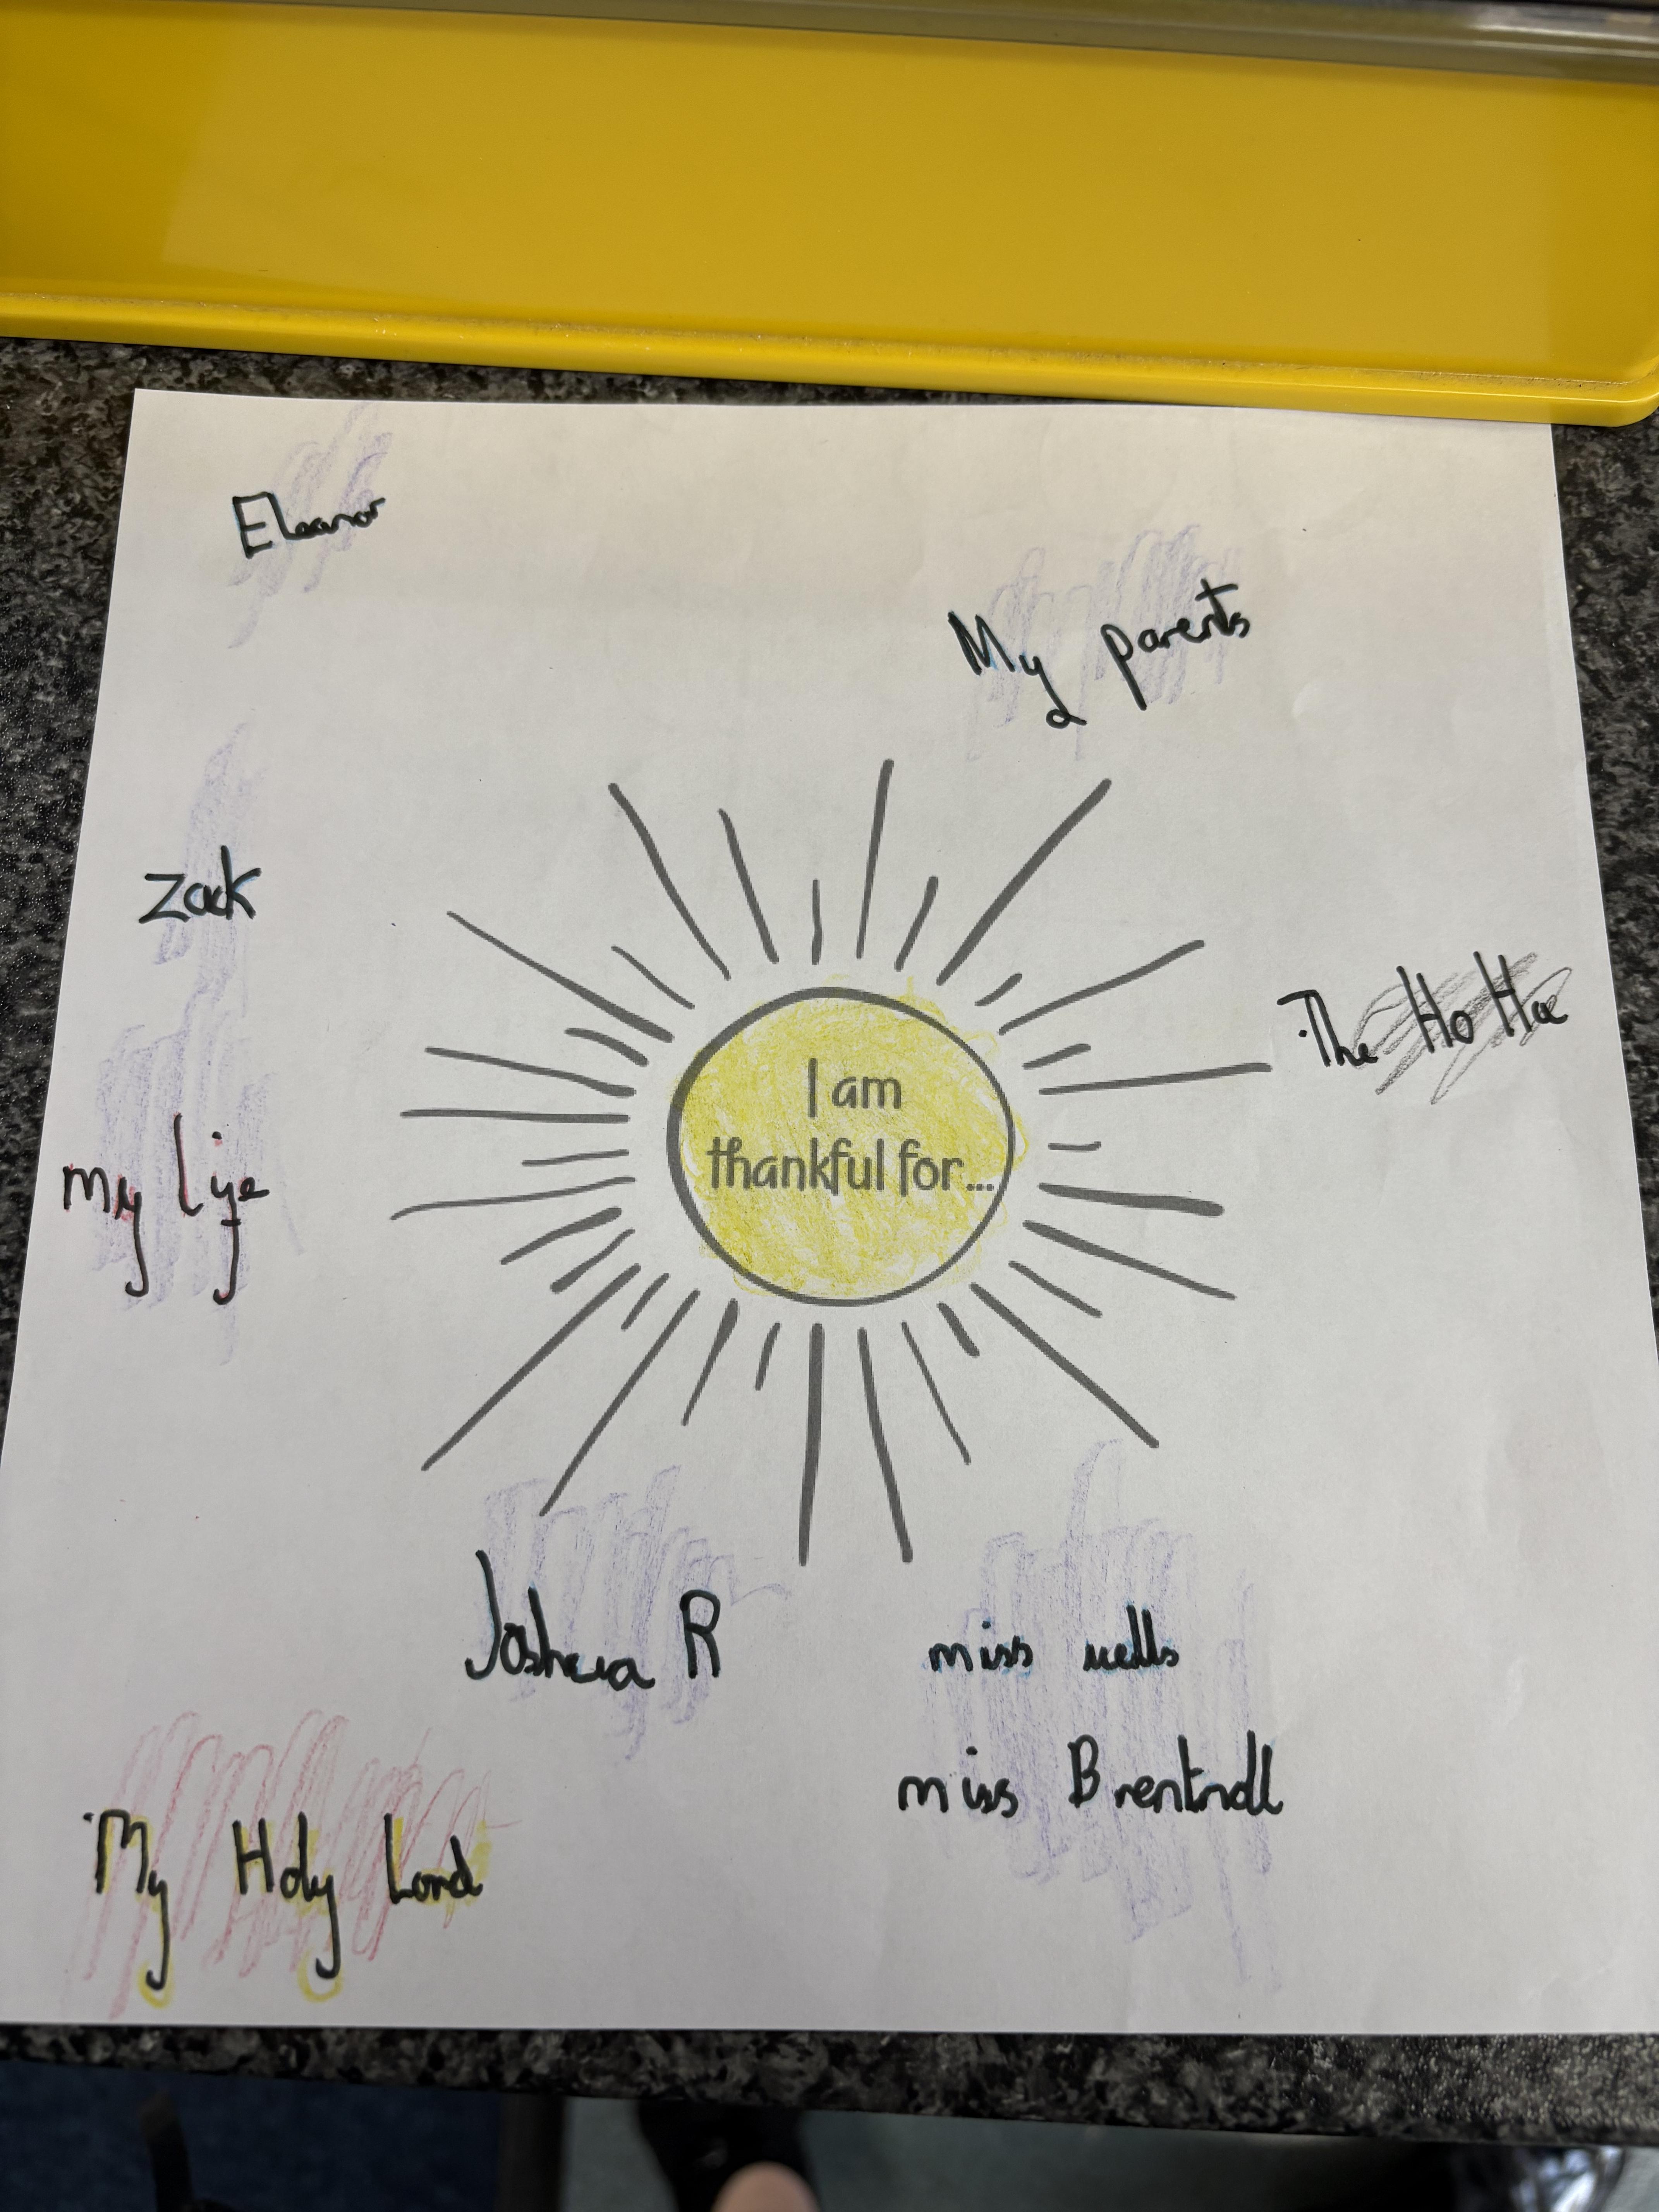 Eleanor
My parents
Zack
The Ho Ha
I am
thankful for...
My life
Joshua R
miss wells
miss Brentnall
My Holy Lord